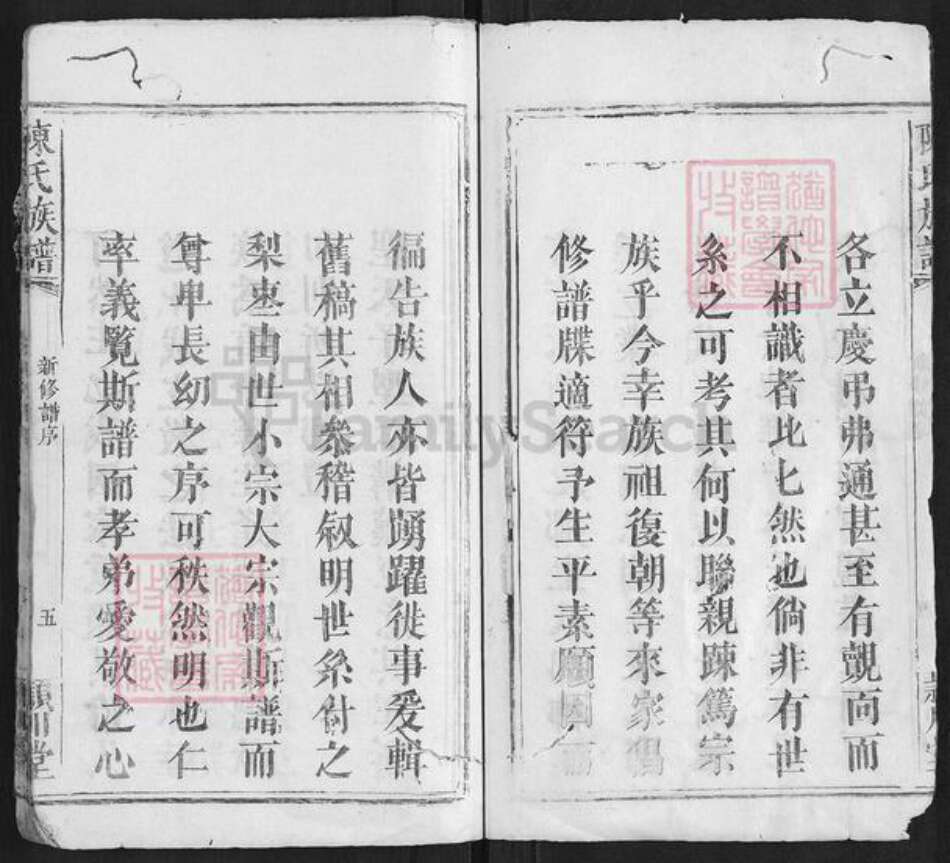 各立慶弔弗通甚至有覿面而
不相識者比匕然也倘非有世
系之可考其何以聯親踈篤宗
族乎今幸族祖復朝等來家倡
修譜牒適符予生平素願因而
徧告族人亦皆踴躍從事爰輯
舊稿其相叅稽叙明世系付之
梨棗由世小宗大宗觀斯譜而
尊卑長幼之序可秩然明也仁
率義覽斯譜而孝弟愛敬之心
陳氏族譜
新修譜序
五
潁川堂
FamilySearch